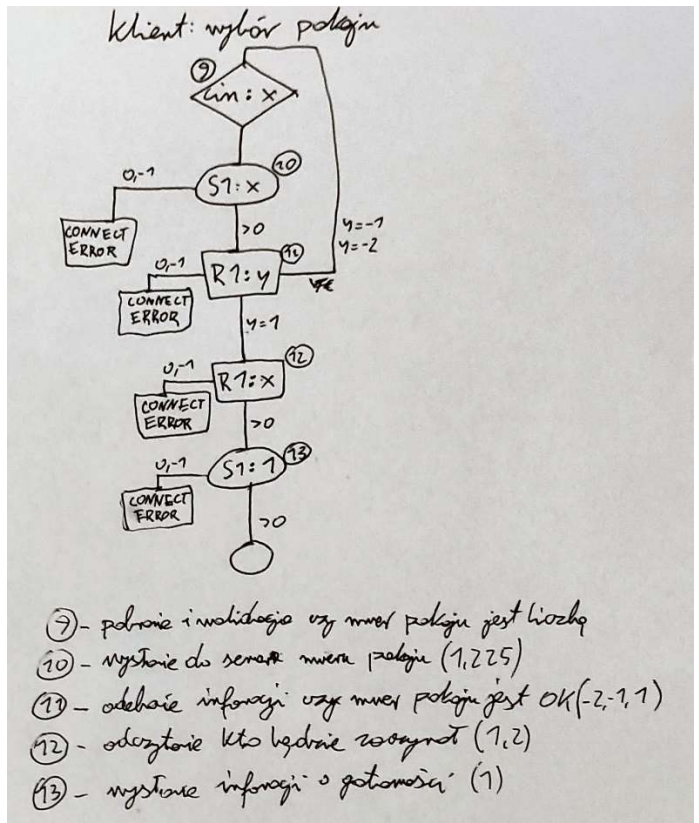 Klient: wybór pokoju
9
Cin: x
10
S1: x
0,-1
CONNECT
ERROR
>0
y=-1
y=-2
11
R1: y
0,-1
CONNECT
ERROR
y=1
12
R1: x
0,-1
CONNECT
ERROR
>0
13
S1: 1
0,-1
CONNECT
ERROR
>0
9 - pobranie i walidacja czy numer pokoju jest liczbą
10 - wysłanie do serwera numeru pokoju (1,225)
11 - odebranie informacji czy numer pokoju jest OK (-2,-1,1)
12 - odczytanie kto będzie zaczynał (1,2)
13 - wysłanie informacji o gotowości (1)